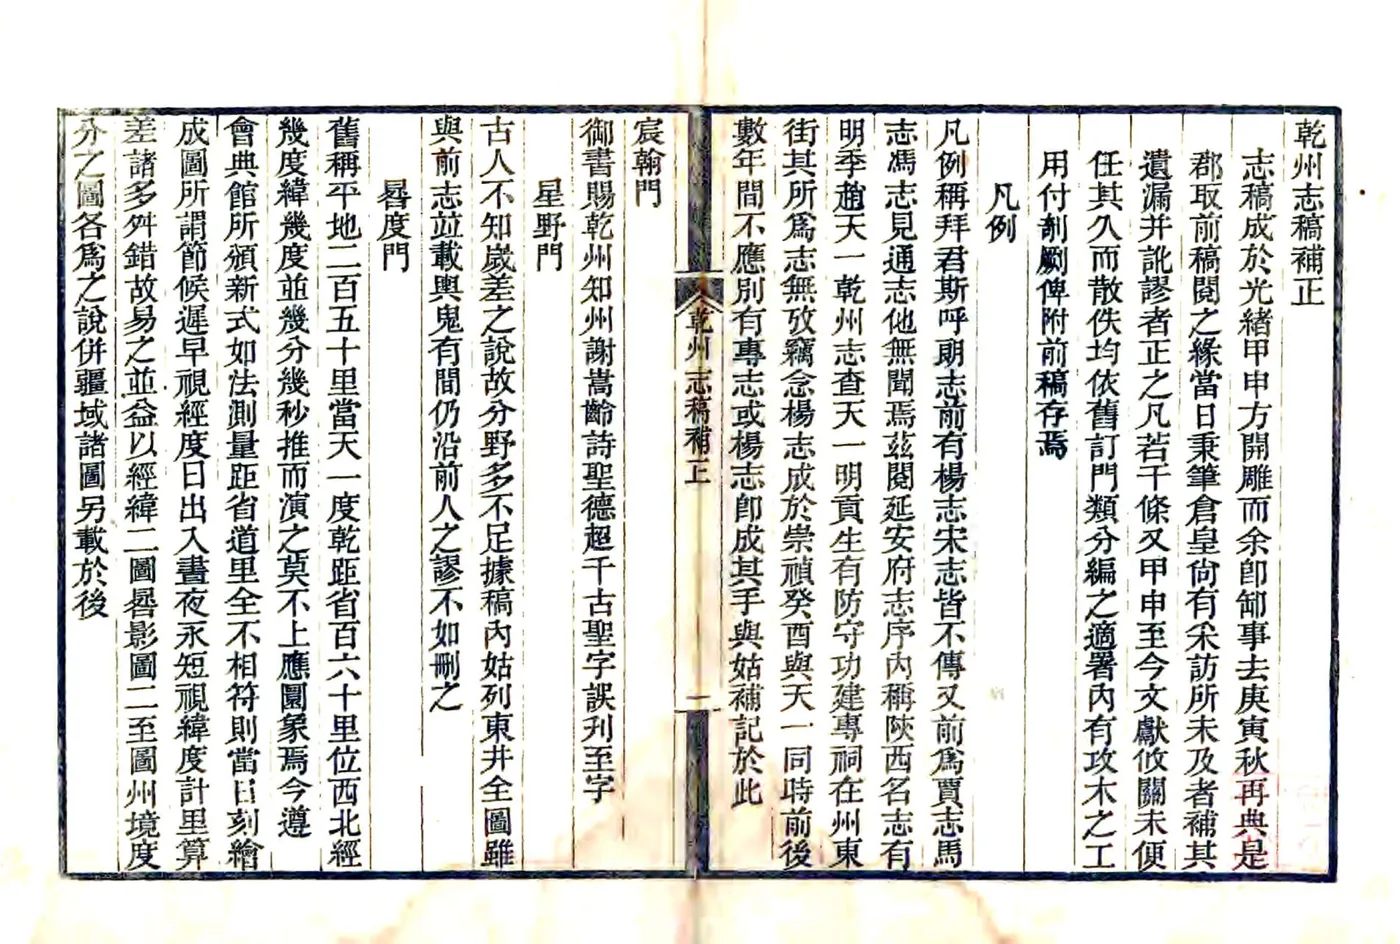 乾州志稿補正
志稿成於光緒甲申方開雕而余卽卸事去庚寅秋再典是
郡取前稿閱之緣當日秉筆倉皇尙有采訪所未及者補其
遺漏并訛謬者正之凡若干條又甲申至今文獻攸關未便
任其久而散佚均依舊訂門類分編之適署內有攻木之工
用付剞劂俾附前稿存焉
凡例
凡例稱拜君斯呼期志前有楊志宋志皆不傳又前爲賈志馬
志馮志見通志他無聞焉茲閱延安府志序內稱陝西名志有
明季趙天一乾州志查天一明貢生有防守功建專祠在州東
街其所爲志無攷竊念楊志成於崇禎癸酉與天一同時前後
數年間不應別有專志或楊志卽成其手與姑補記於此
乾州志稿補正
一
宸翰門
御書賜乾州知州謝嵩齡詩聖德超千古聖字誤刋至字
星野門
古人不知歲差之說故分野多不足據稿內姑列東井全圖雖
與前志竝載輿鬼有間仍沿前人之謬不如刪之
晷度門
舊稱平地二百五十里當天一度乾距省百六十里位西北經
幾度緯幾度並幾分幾秒推而演之莫不上應圜象焉今遵
會典館所頒新式如法測量距省道里全不相符則當日刻繪
成圖所謂節候遲早視經度日出入晝夜永短視緯度計里算
差諸多舛錯故易之並益以經緯二圖晷影圖二至圖州境度
分之圖各爲之說併疆域諸圖另載於後